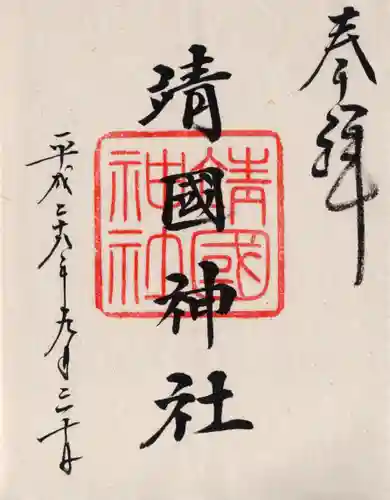 奉拝
靖國神社
靖國
神社
平成二十六年九月二十日